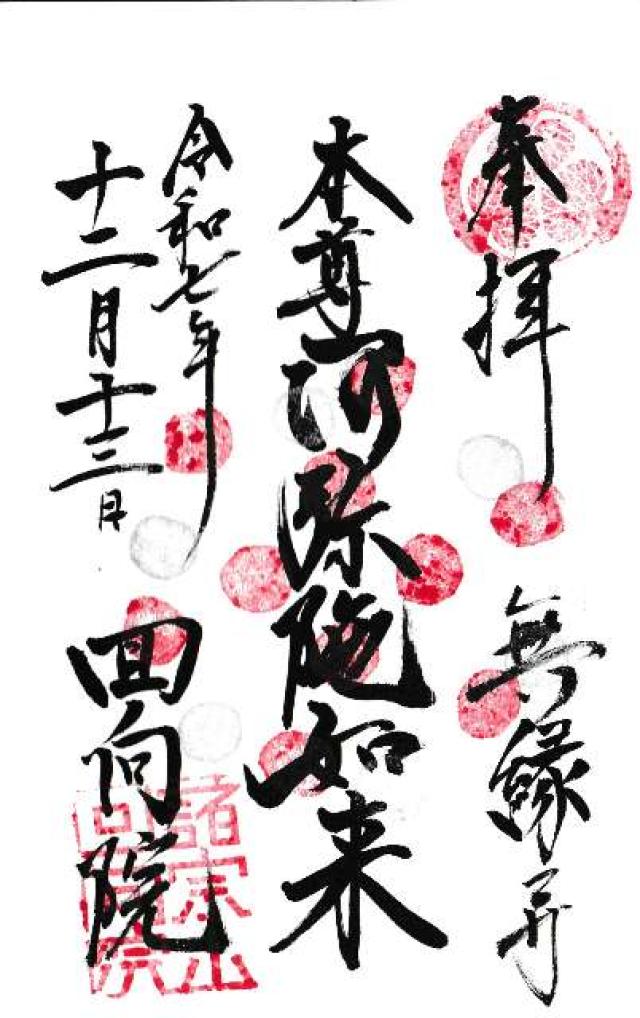 奉拝
無縁寺
本尊阿弥陀如来
令和七年
十二月十三日
回向院
諸宗山
回向院